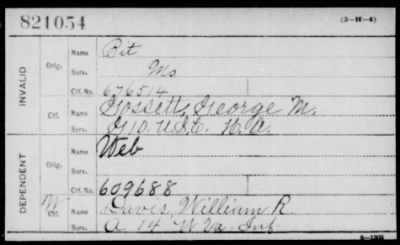 821054 (3-H-4)
INVALID
Orig. Name Bit
Serv. Mo
Ctf. No. 676514
Ctf. Name Gossett, George M.
Serv. G 10. U.S.C. H. A.
DEPENDENT
Orig. Name Web
Serv.
Ctf. No. 609688
W Ctf. Name Davis, William R.
Serv. A. 14 W Va. Inf